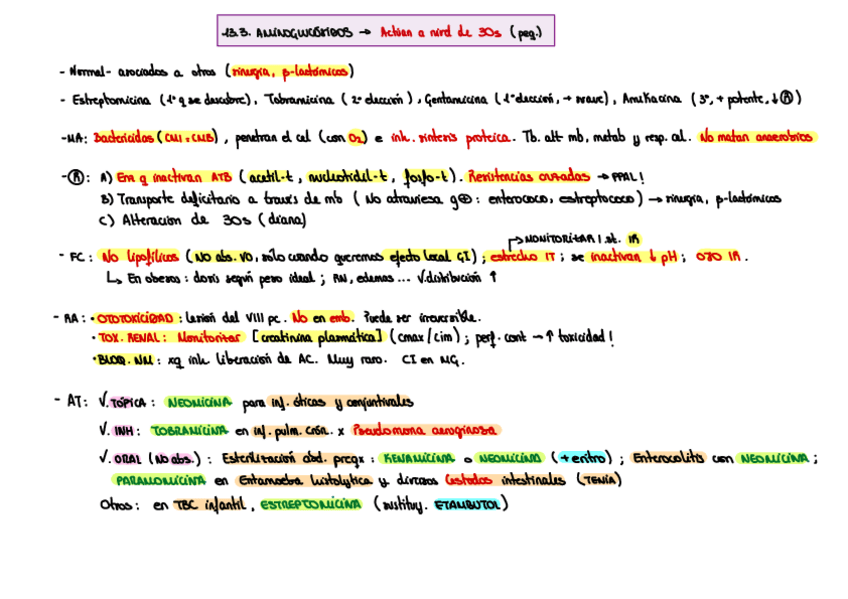 13.3. AMINOGLUCÓSIDOS → Actúan a nivel de 30s (peq.)
- Normal- asociados a otros (sinergia, β-lactámicos)
- Estreptomicina (1º q se descubre), Tobramicina (2º elección), Gentamicina (1ª elección, → suave), Amikacina (3º, + potente, ↓Ⓡ)
- MA: Bactericidas (CMI=CMB), penetran el cel (con O2) e inh. síntesis proteica. Tb. alt mb, metab y resp. cel. No matan anaerobios
- Ⓡ: A) Enz q inactivan ATB (acetil-t, nucleotidil-t, fosfo-t). Resistencias cruzadas → PPAL!
B) Transporte deficitario a través de mb (No atraviesa g⊕: enterococo, estreptococo) → sinergia, β-lactámicos
C) Alteración de 30s (diana)
→ MONITORIZAR / st. IR
- FC: No lipofílicos (NO abs. VO, sólo cuando queremos efecto local GI); estrecho IT; se inactivan ↓ pH; OJO IR.
↳ En obesos: dosis según peso ideal; RN, edemas... V.distribución ↑
- RA: · OTOTOXICIDAD: Lesión del VIII pc. No en emb. Puede ser irreversible.
· TOX. RENAL: Monitorizar [creatinina plasmática] (cmax/cim); perf. cont → ↑ toxicidad!
· BLOQ. NM: xq inh liberación de AC. Muy raro. CI en MG.
- AT: V. TÓPICA: NEOMICINA para inf. óticas y conjuntivales
V. INH: TOBRAMICINA en inf. pulm. crón. x Pseudomona aeruginosa
V. ORAL (No abs.): Esterilización abd. preqx: KANAMICINA o NEOMICINA (+ eritro); Enterocolitis con NEOMICINA;
PARAMOMICINA en Entamoeba histolytica y diversos Cestodos intestinales (TENIA)
Otros: en TBC infantil, ESTREPTOMICINA (sustituy. ETAMBUTOL)